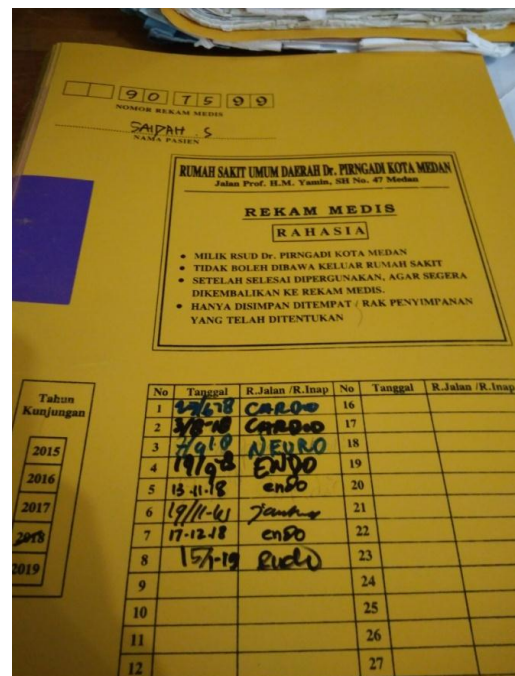 90 75 99
NOMOR REKAM MEDIS
SAIDAH . S
NAMA PASIEN
RUMAH SAKIT UMUM DAERAH Dr. PIRNGADI KOTA MEDAN
Jalan Prof. H.M. Yamin, SH No. 47 Medan
REKAM MEDIS
RAHASIA
• MILIK RSUD Dr. PIRNGADI KOTA MEDAN
• TIDAK BOLEH DIBAWA KELUAR RUMAH SAKIT
• SETELAH SELESAI DIPERGUNAKAN, AGAR SEGERA
DIKEMBALIKAN KE REKAM MEDIS.
• HANYA DISIMPAN DITEMPAT / RAK PENYIMPANAN
YANG TELAH DITENTUKAN
Tahun
Kunjungan
2015
2016
2017
2018
2019
No Tanggal R.Jalan /R.Inap No Tanggal R.Jalan /R.Inap
1 CARDIO 16
2 CARDIO 17
3 NEURO 18
4 ENDO 19
5 13-11-18 endo 20
6 21
7 17-12-18 endo 22
8 23
9 24
10 25
11 26
12 27